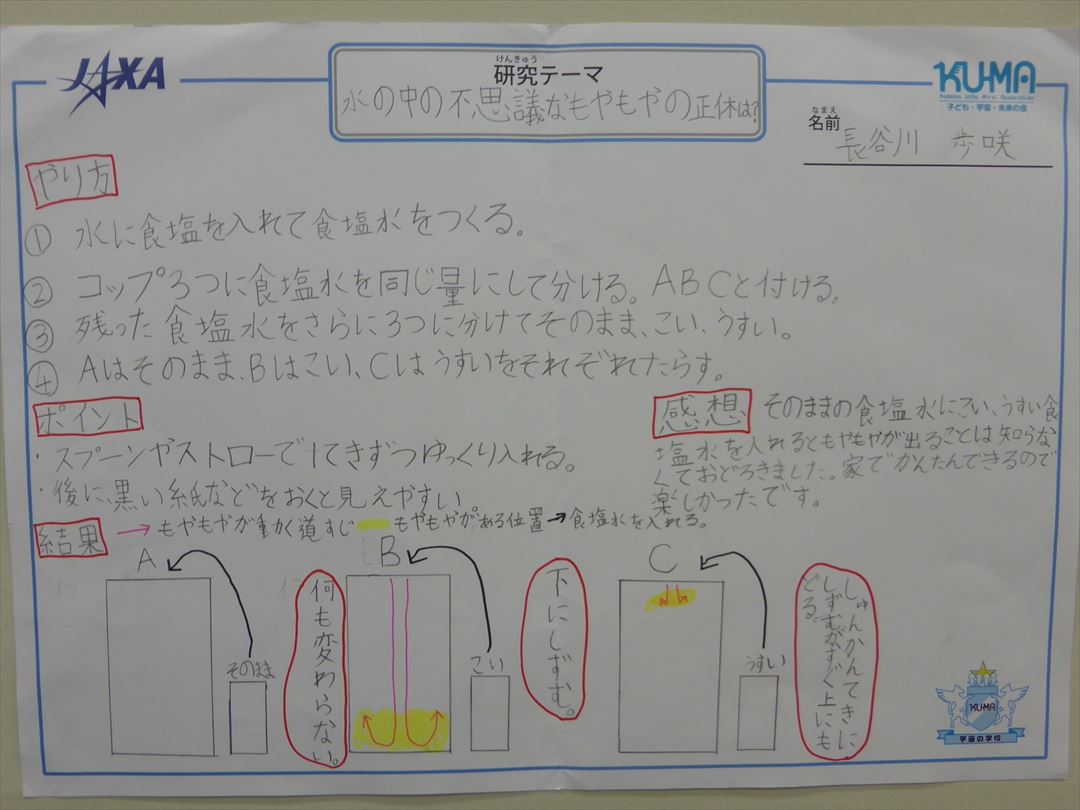 JAXA
けんきゅう
研究テーマ
水の中の不思議なもやもやの正体は?
KU-MA
Kodomo Uchu Mirai Association
子ども・宇宙・未来の会
なまえ
名前
長谷川 歩咲
やり方
① 水に食塩を入れて食塩水をつくる。
② コップ3つに食塩水を同じ量にして分ける。ABCと付ける。
③ 残った食塩水をさらに3つに分けてそのまま、こい、うすい。
④ Aはそのまま、Bはこい、Cはうすいをそれぞれたらす。
ポイント
・スプーンやストローで1てきずつゆっくり入れる。
・後に黒い紙などをおくと見えやすい
感想 そのままの食塩水にこい、うすい食
塩水を入れるともやもやが出ることは知らな
くておどろきました。家でかんたんできるので
楽しかったです。
結果 → もやもやが動く道すじ もやもやがある位置 → 食塩水を入れる。
A
そのまま
何も変わらない。
B
こい
下にしずむ。
C
うすい
しゅんかんてきに
しずむがすぐ上にも
どる。
KUMA
宇宙の学校